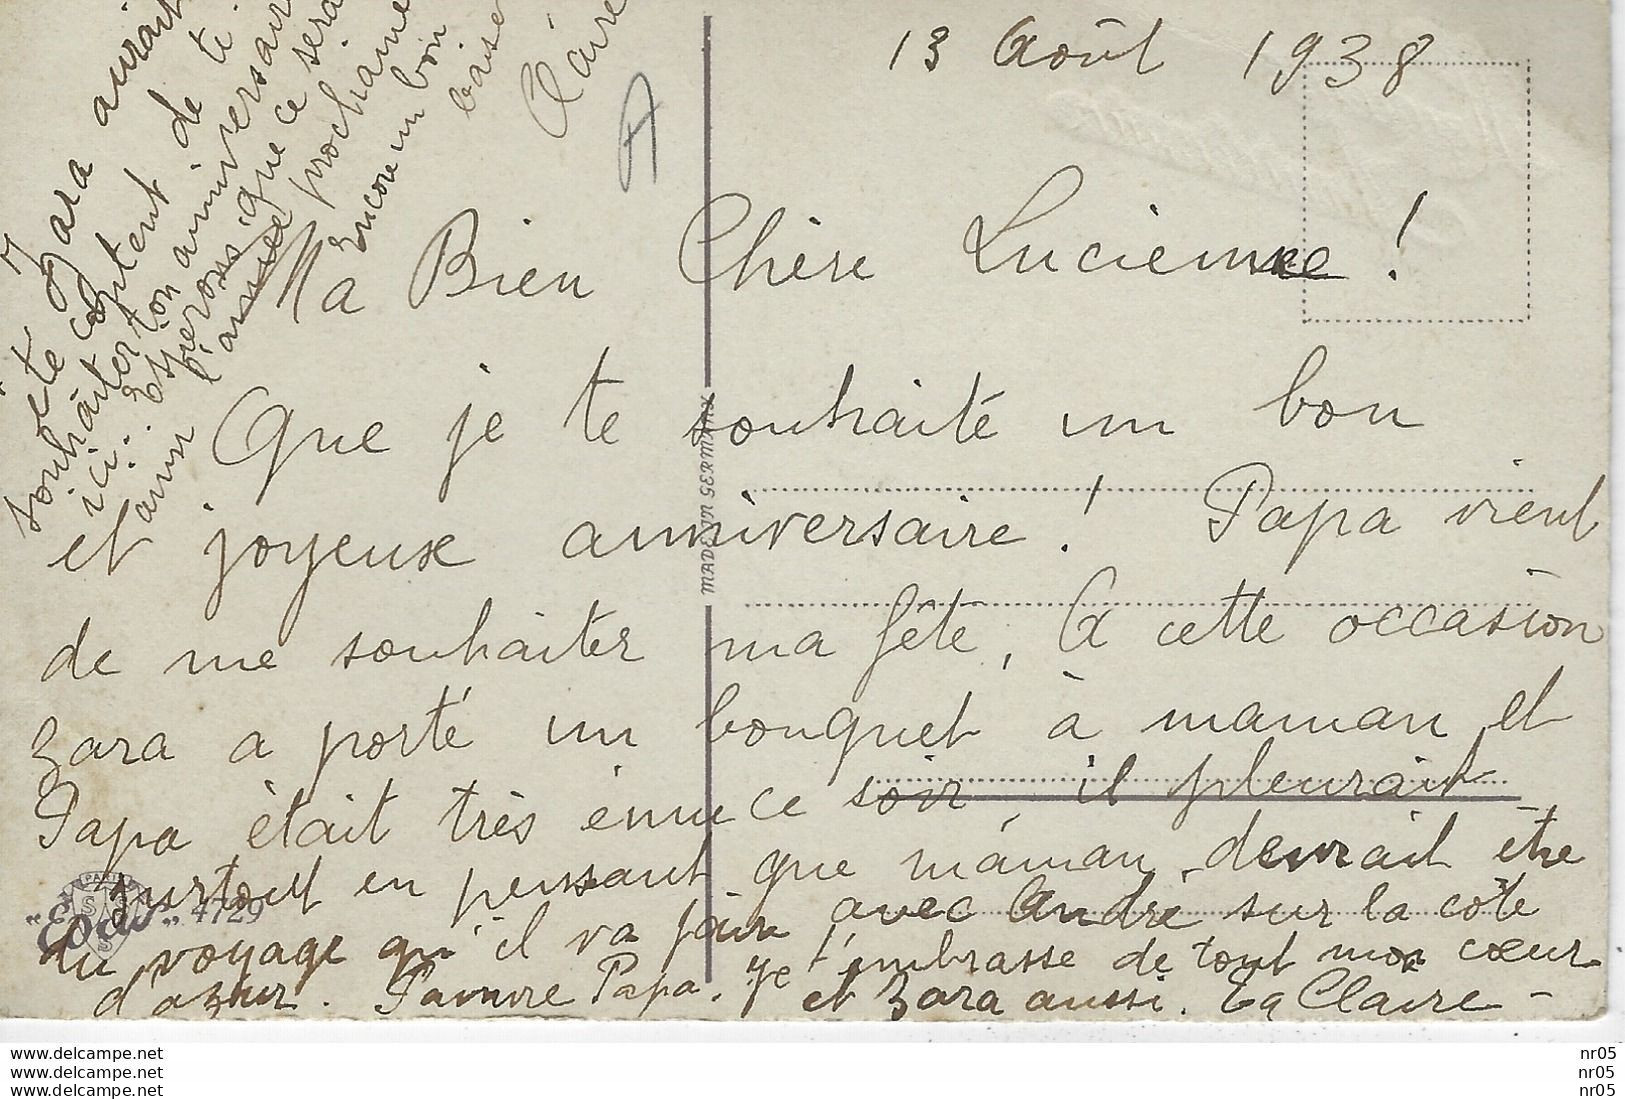 13 Août 1938
A
Ma Bien Chère Lucienne !
Que je te souhaité un bon
et joyeux anniversaire ! Papa vient
de me souhaiter ma fête, A cette occasion
Zara a porté un bouquet à maman et
Papa était très émue ce soir, il pleurait
surtout en pensant que maman devrait être
du voyage qu'il va faire avec André sur la côte
d'azur. Pauvre Papa. Je t'embrasse de tout mon cœur
et Zara aussi. Ta Claire -
Zara aurait
été content de te
souhaiter ton anniversaire
ici... Espérons que ce sera
pour l'année prochaine
Encore un bon
baiser
Claire
MADE IN GERMANY
PARIS
S S S
"EDUG" 4729
www.delcampe.net nr05
www.delcampe.net nr05
www.delcampe.net nr05